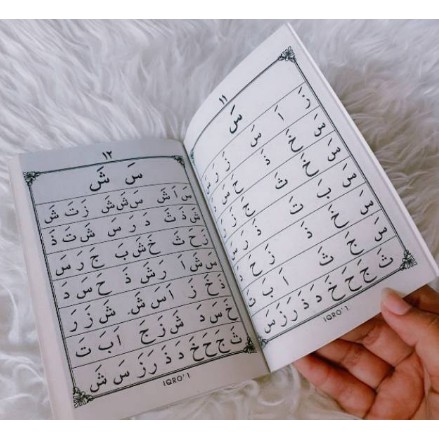 ١١
سَ
زَ اَ سَ زَ رَ
سَ خَ ذَ حَ سَ
سَ خَ ثَ جَ زَ
سَ بَ تَ دَ رَ
سَ خَ ذَ زَ حَ
سَ جَ ثَ اَ بَ تَ
ثَ جَ حَ خَ دَ ذَ رَ زَ سَ
IQRO' 1
١٢
سَ شَ
شَ اَ سَشَشَ زَ تَ شَ
شَ ذَ ثَ دَ رَ سَ شَ تَ ذَ
زَ حَ ثَ خَ شَ بَ جَ رَ سَ
سَشَ اَ رَ شَ ذَ حَ سَ دَ
ذَ خَ رَ اَ سَ شَ شَ زَ رَ
خَ سَ دَ شَ زَ جَ اَ بَ تَ
ثَ جَ حَ خَ دَ ذَ رَ زَ سَ شَ
IQRO' 1